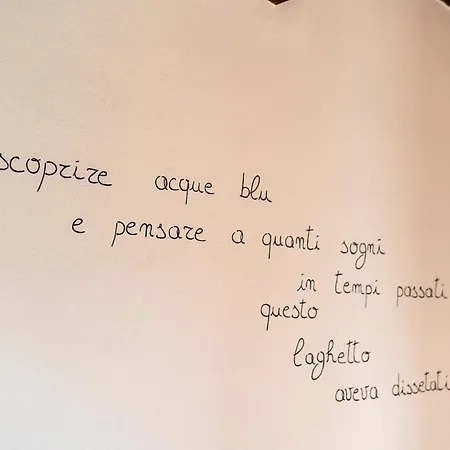 scoprire acque blu
e pensare a quanti sogni
in tempi passati
questo
laghetto
aveva dissetati